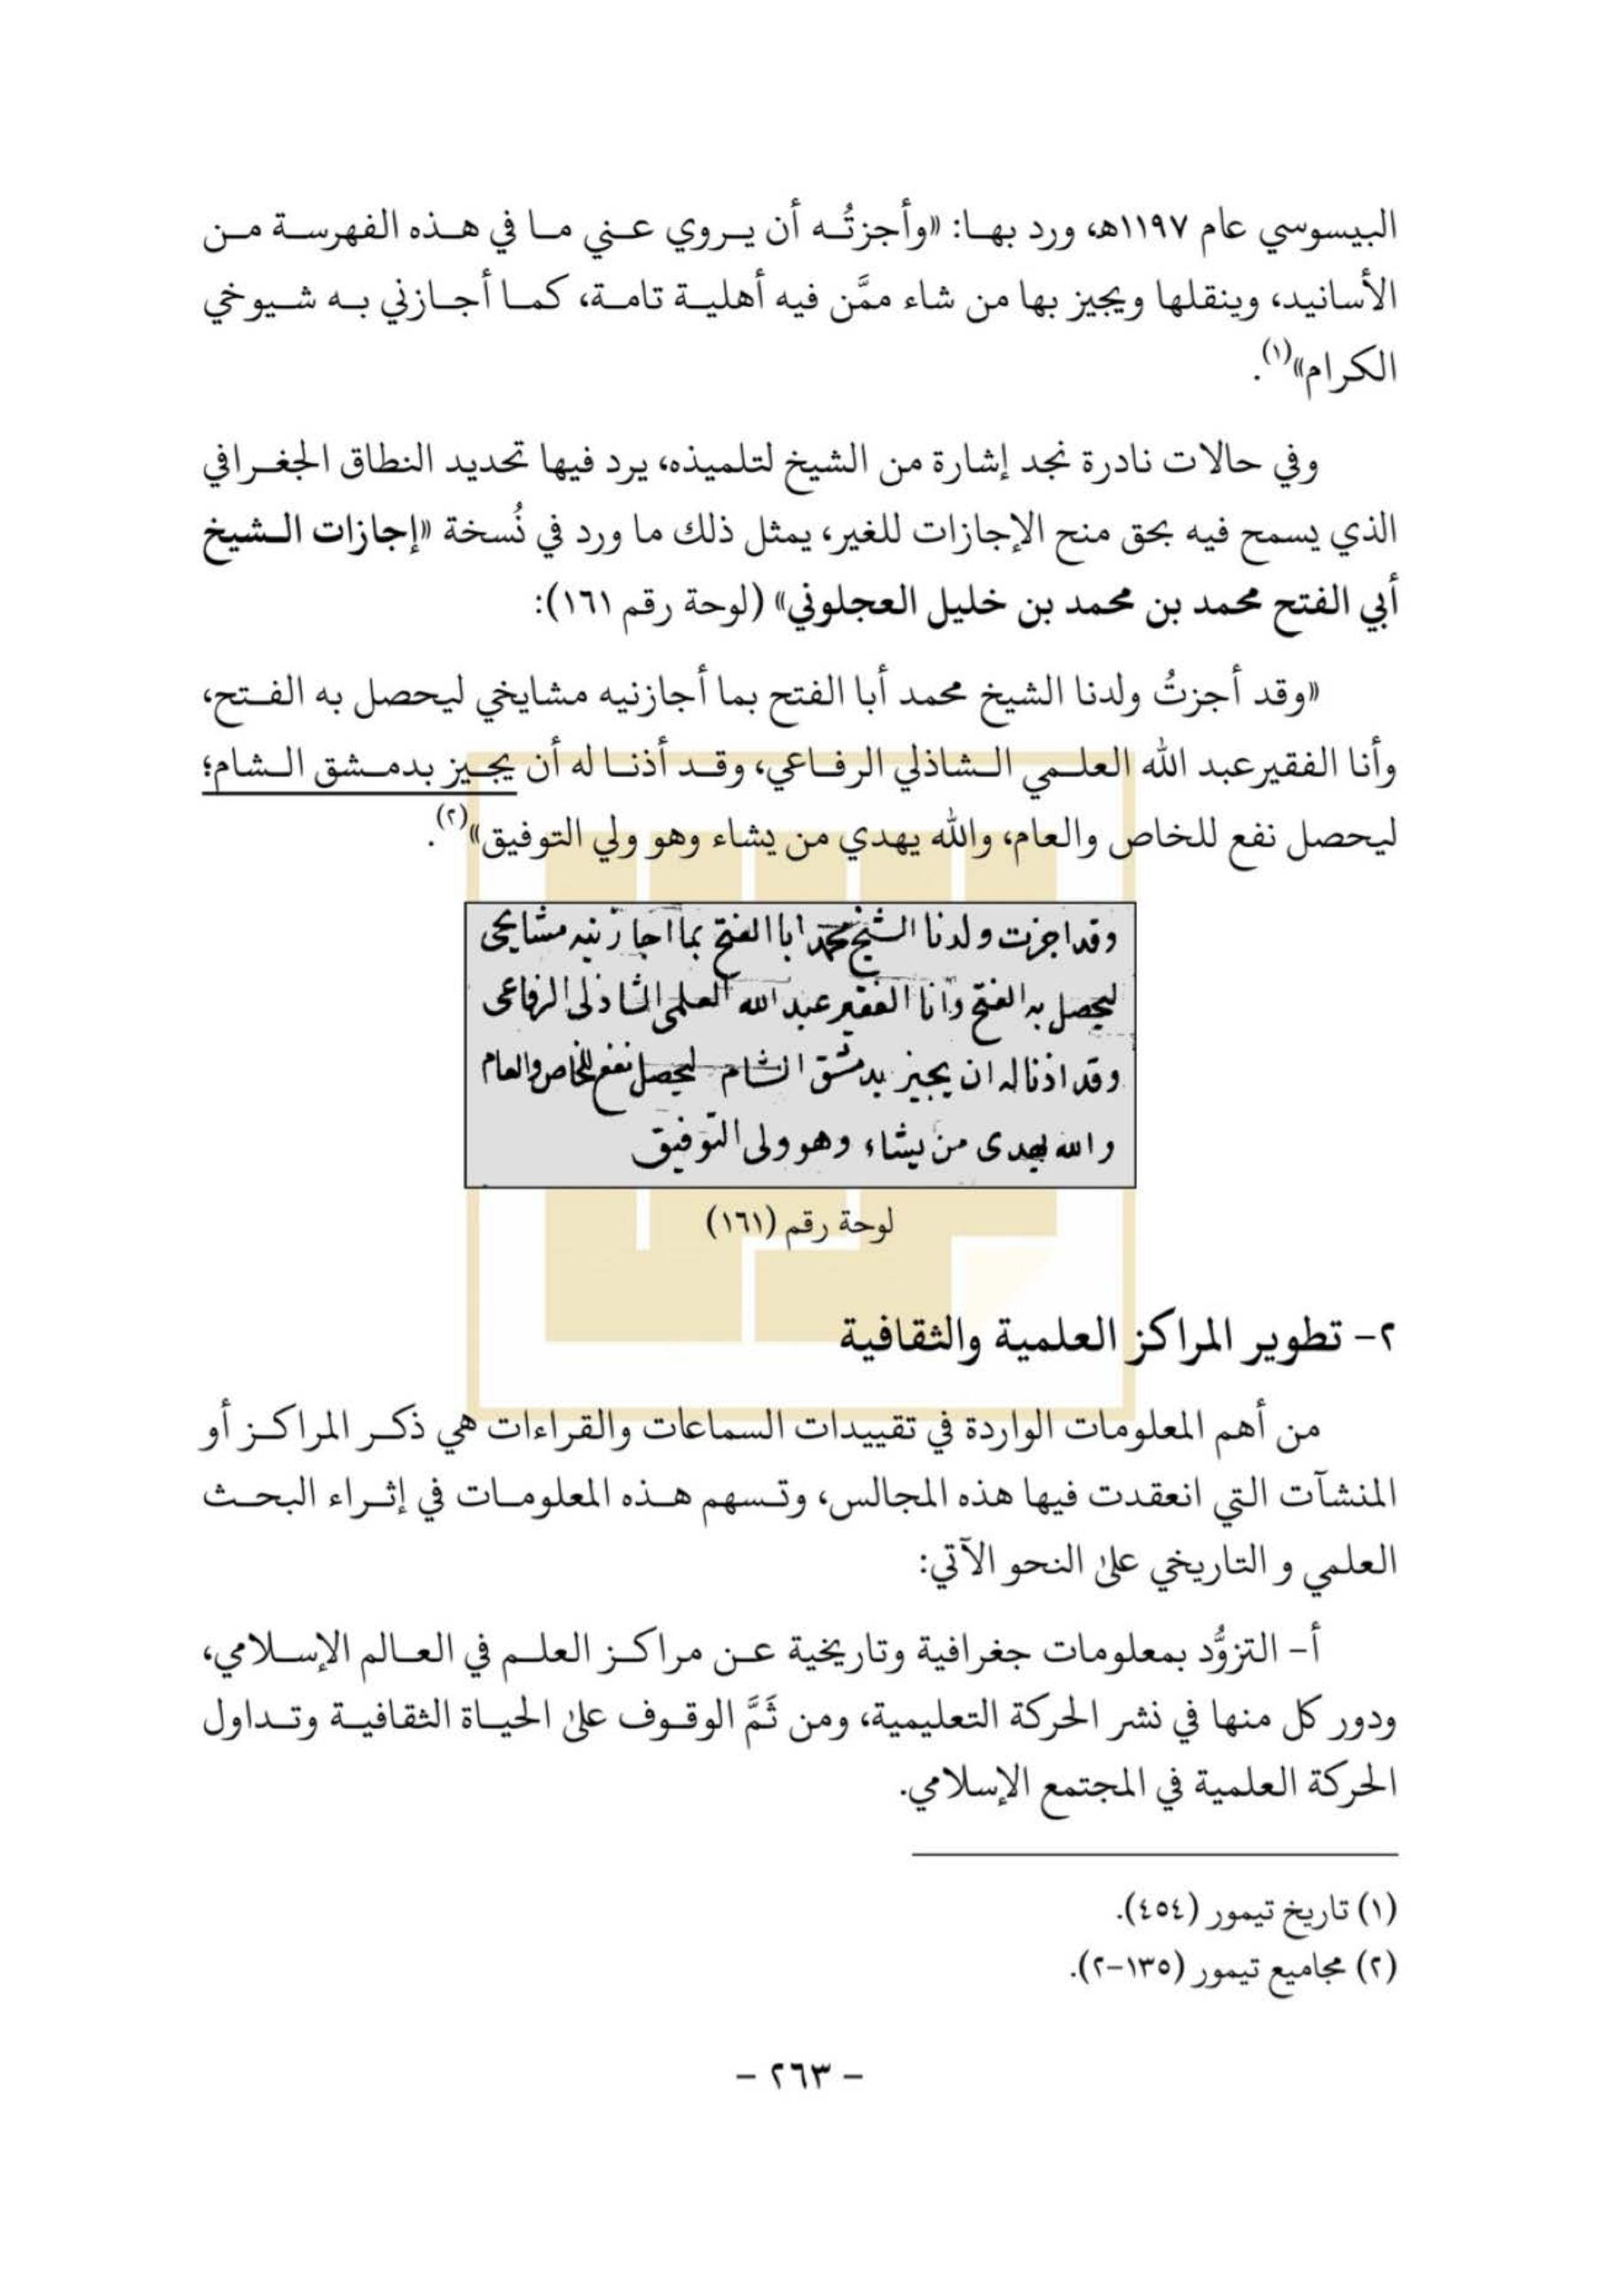 البيسوسي عام ١١٩٧هـ، ورد بهـا: «وأجزتُـه أن يـروي عـني مـا في هـذه الفهرسـة مـن
الأسانيد، وينقلها ويجيز بها من شاء ممَّن فيه أهليـة تامـة، كمـا أجـازني بـه شـيوخي
الكرام»(١).
وفي حالات نادرة نجد إشارة من الشيخ لتلميذه، يرد فيها تحديد النطاق الجغـرافي
الذي يسمح فيه بحق منح الإجازات للغير، يمثل ذلك ما ورد في نُسخة «إجازات الـشيخ
أبي الفتح محمد بن محمد بن خليل العجلوني» (لوحة رقم ١٦١):
«وقد أجزتُ ولدنا الشيخ محمد أبا الفتح بما أجازنيه مشايخي ليحصل به الفـتح،
وأنا الفقير عبد الله العلـمي الـشاذلي الرفـاعي، وقـد أذنـا له أن يجـيز بدمـشق الـشام؛
ليحصل نفع للخاص والعام، والله يهدي من يشاء وهو ولي التوفيق»(٢).
وقد اجزت ولدنا الشيخ محمد ابا الفتح بما اجازنيه مشايخى
ليحصل به الفتح وانا الفقير عبد الله العلمى الشاذلى الرفاعى
وقد اذنا له ان يجيز بدمشق الشام ليحصل نفع للخاص والعام
والله يهدى من يشاء وهو ولى التوفيق
لوحة رقم (١٦١)
٢- تطوير المراكز العلمية والثقافية
من أهم المعلومات الواردة في تقييدات السماعات والقراءات هي ذكـر المراكـز أو
المنشآت التي انعقدت فيها هذه المجالس، وتـسهم هـذه المعلومـات في إثـراء البحـث
العلمي و التاريخي على النحو الآتي:
أ- التزوُّد بمعلومات جغرافية وتاريخية عـن مراكـز العلـم في العـالم الإسـلامي،
ودور كل منها في نشر الحركة التعليمية، ومن ثَمَّ الوقـوف على الحيـاة الثقافيـة وتـداول
الحركة العلمية في المجتمع الإسلامي.
(١) تاريخ تيمور (٤٥٤).
(٢) مجاميع تيمور (١٣٥-٢).
- ٢٦٣ -